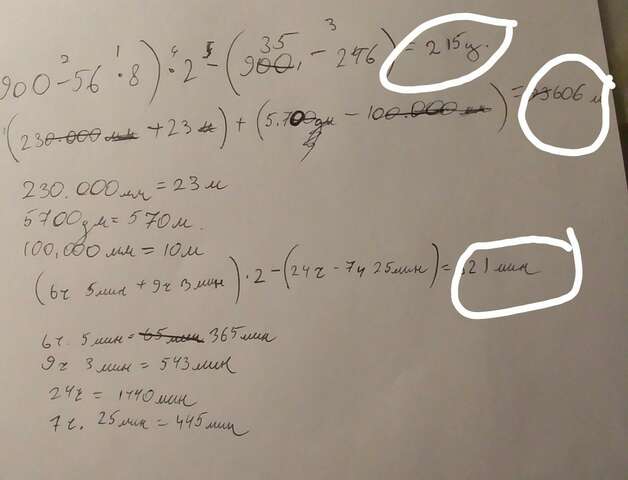 900 - 56 · 8) · 2 - (35 - 246) = 215ц.
(230.000 мм + 23 м) + (5.700 дм - 100.000 мм) = 606 м
230.000мм = 23м
5700дм = 570м.
100,000 мм = 10м
(6ч 5мин + 9ч 3мин) · 2 - (24ч - 7ч 25мин) = 821мин
6ч. 5мин = 65мин 365мин
9ч 3мин = 543мин
24ч = 1440мин
7ч. 25мин = 445мин